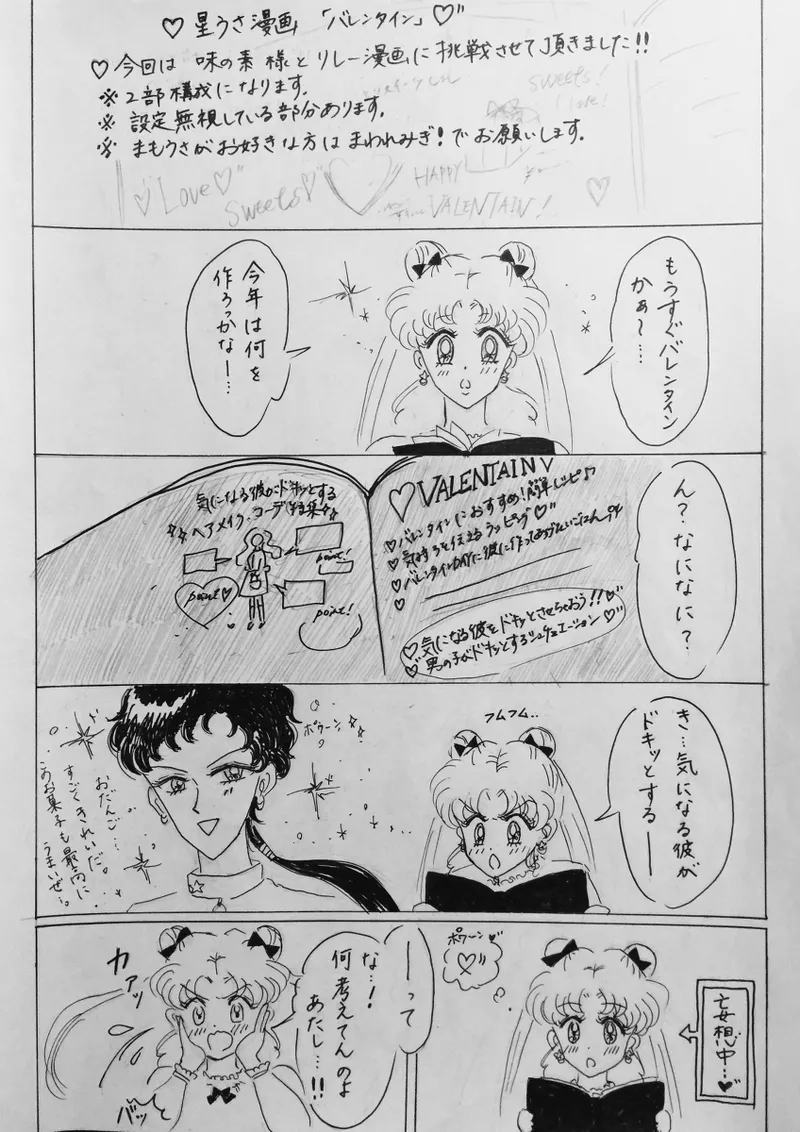 ♡星うさ漫画 「バレンタイン」♡
♡今回は 味の素 様と リレー漫画に 挑戦させて頂きました!!
※2部構成になります.
※設定無視している部分あります.
※まもうさがお好きな方は まわれみぎ! でお願いします.
sweets!
love!
Love♡
sweets♡
HAPPY
VALENTAIN!
もうすぐバレンタイン
かぁ〜…
今年は何を
作ろっかなー…
ん?なになに?
♡VALENTAIN
♡バレンタインにおすすめ!簡単レシピ♪
♡気持ちを伝えるラッピング♡
♡バレンタインDAYに彼に作ってあげたい
♡
♡気になる彼をドキッとさせちゃおう!!♡
♡男の子がドキッとするシュチュエーション♡
気になる彼がドキッとする
ヘアメイク・コーデ特集
point!
point♡
point!
き…気になる彼が
ドキッとするー
フムフム..
ポワーン
おだんご…
すごくきれいだ。
このお菓子も最高に
うまいぜ。
妄想中…♡
ポワーン
ーって
な…!
何考えてんのよ
あたし…!!
カァッ
バッ